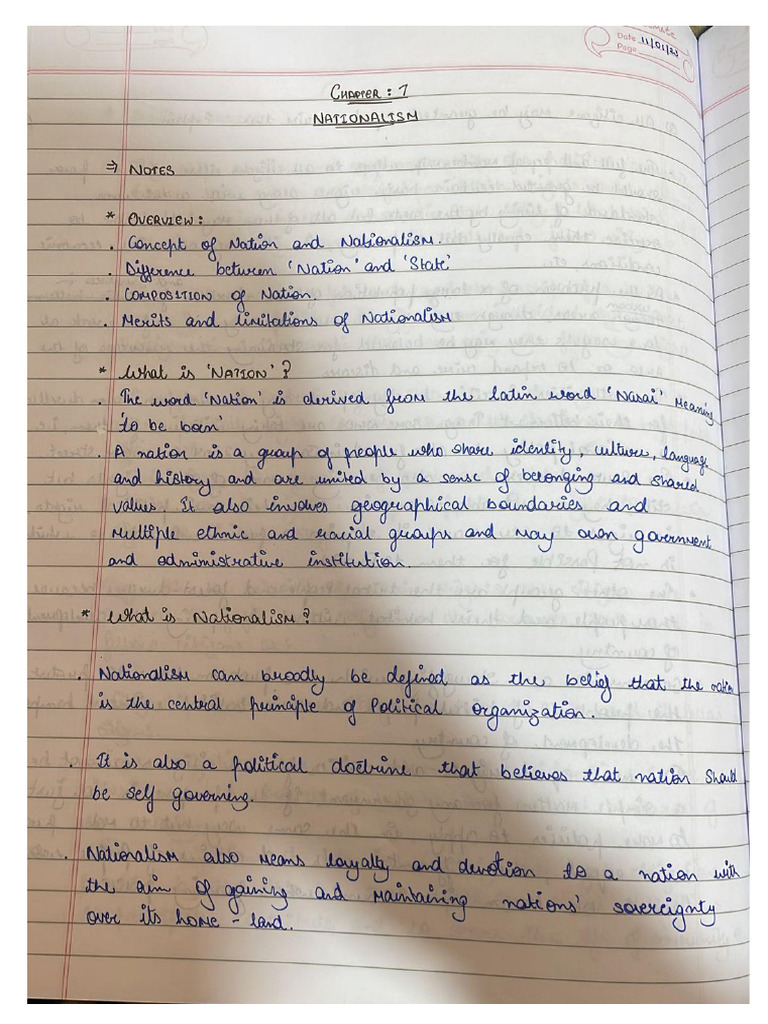 Date 11/01/23
Page
CHAPTER : 7
NATIONALISM
⇒ NOTES
* OVERVIEW :
. Concept of Nation and Nationalism.
. Difference between 'Nation' and 'State'
. COMPOSITION of Nation.
. Merits and limitations of Nationalism
* What is 'NATION' ?
. The word 'Nation' is derived from the latin word 'Nasai' Meaning
'to be born'
. A nation is a group of people who share identity, culture, language
and history and are united by a sense of belonging and shared
values. It also involves geographical boundaries and
Multiple ethnic and racial groups and may own government
and administrative institution.
* What is Nationalism ?
. Nationalism can broadly be defined as the belief that the nation
is the central principle of Political organization.
. It is also a political doctrine that believes that nation should
be self governing.
. Nationalism also Means loyalty and devotion to a nation with
the aim of gaining and maintaining nations' sovereignty
over its home - land.